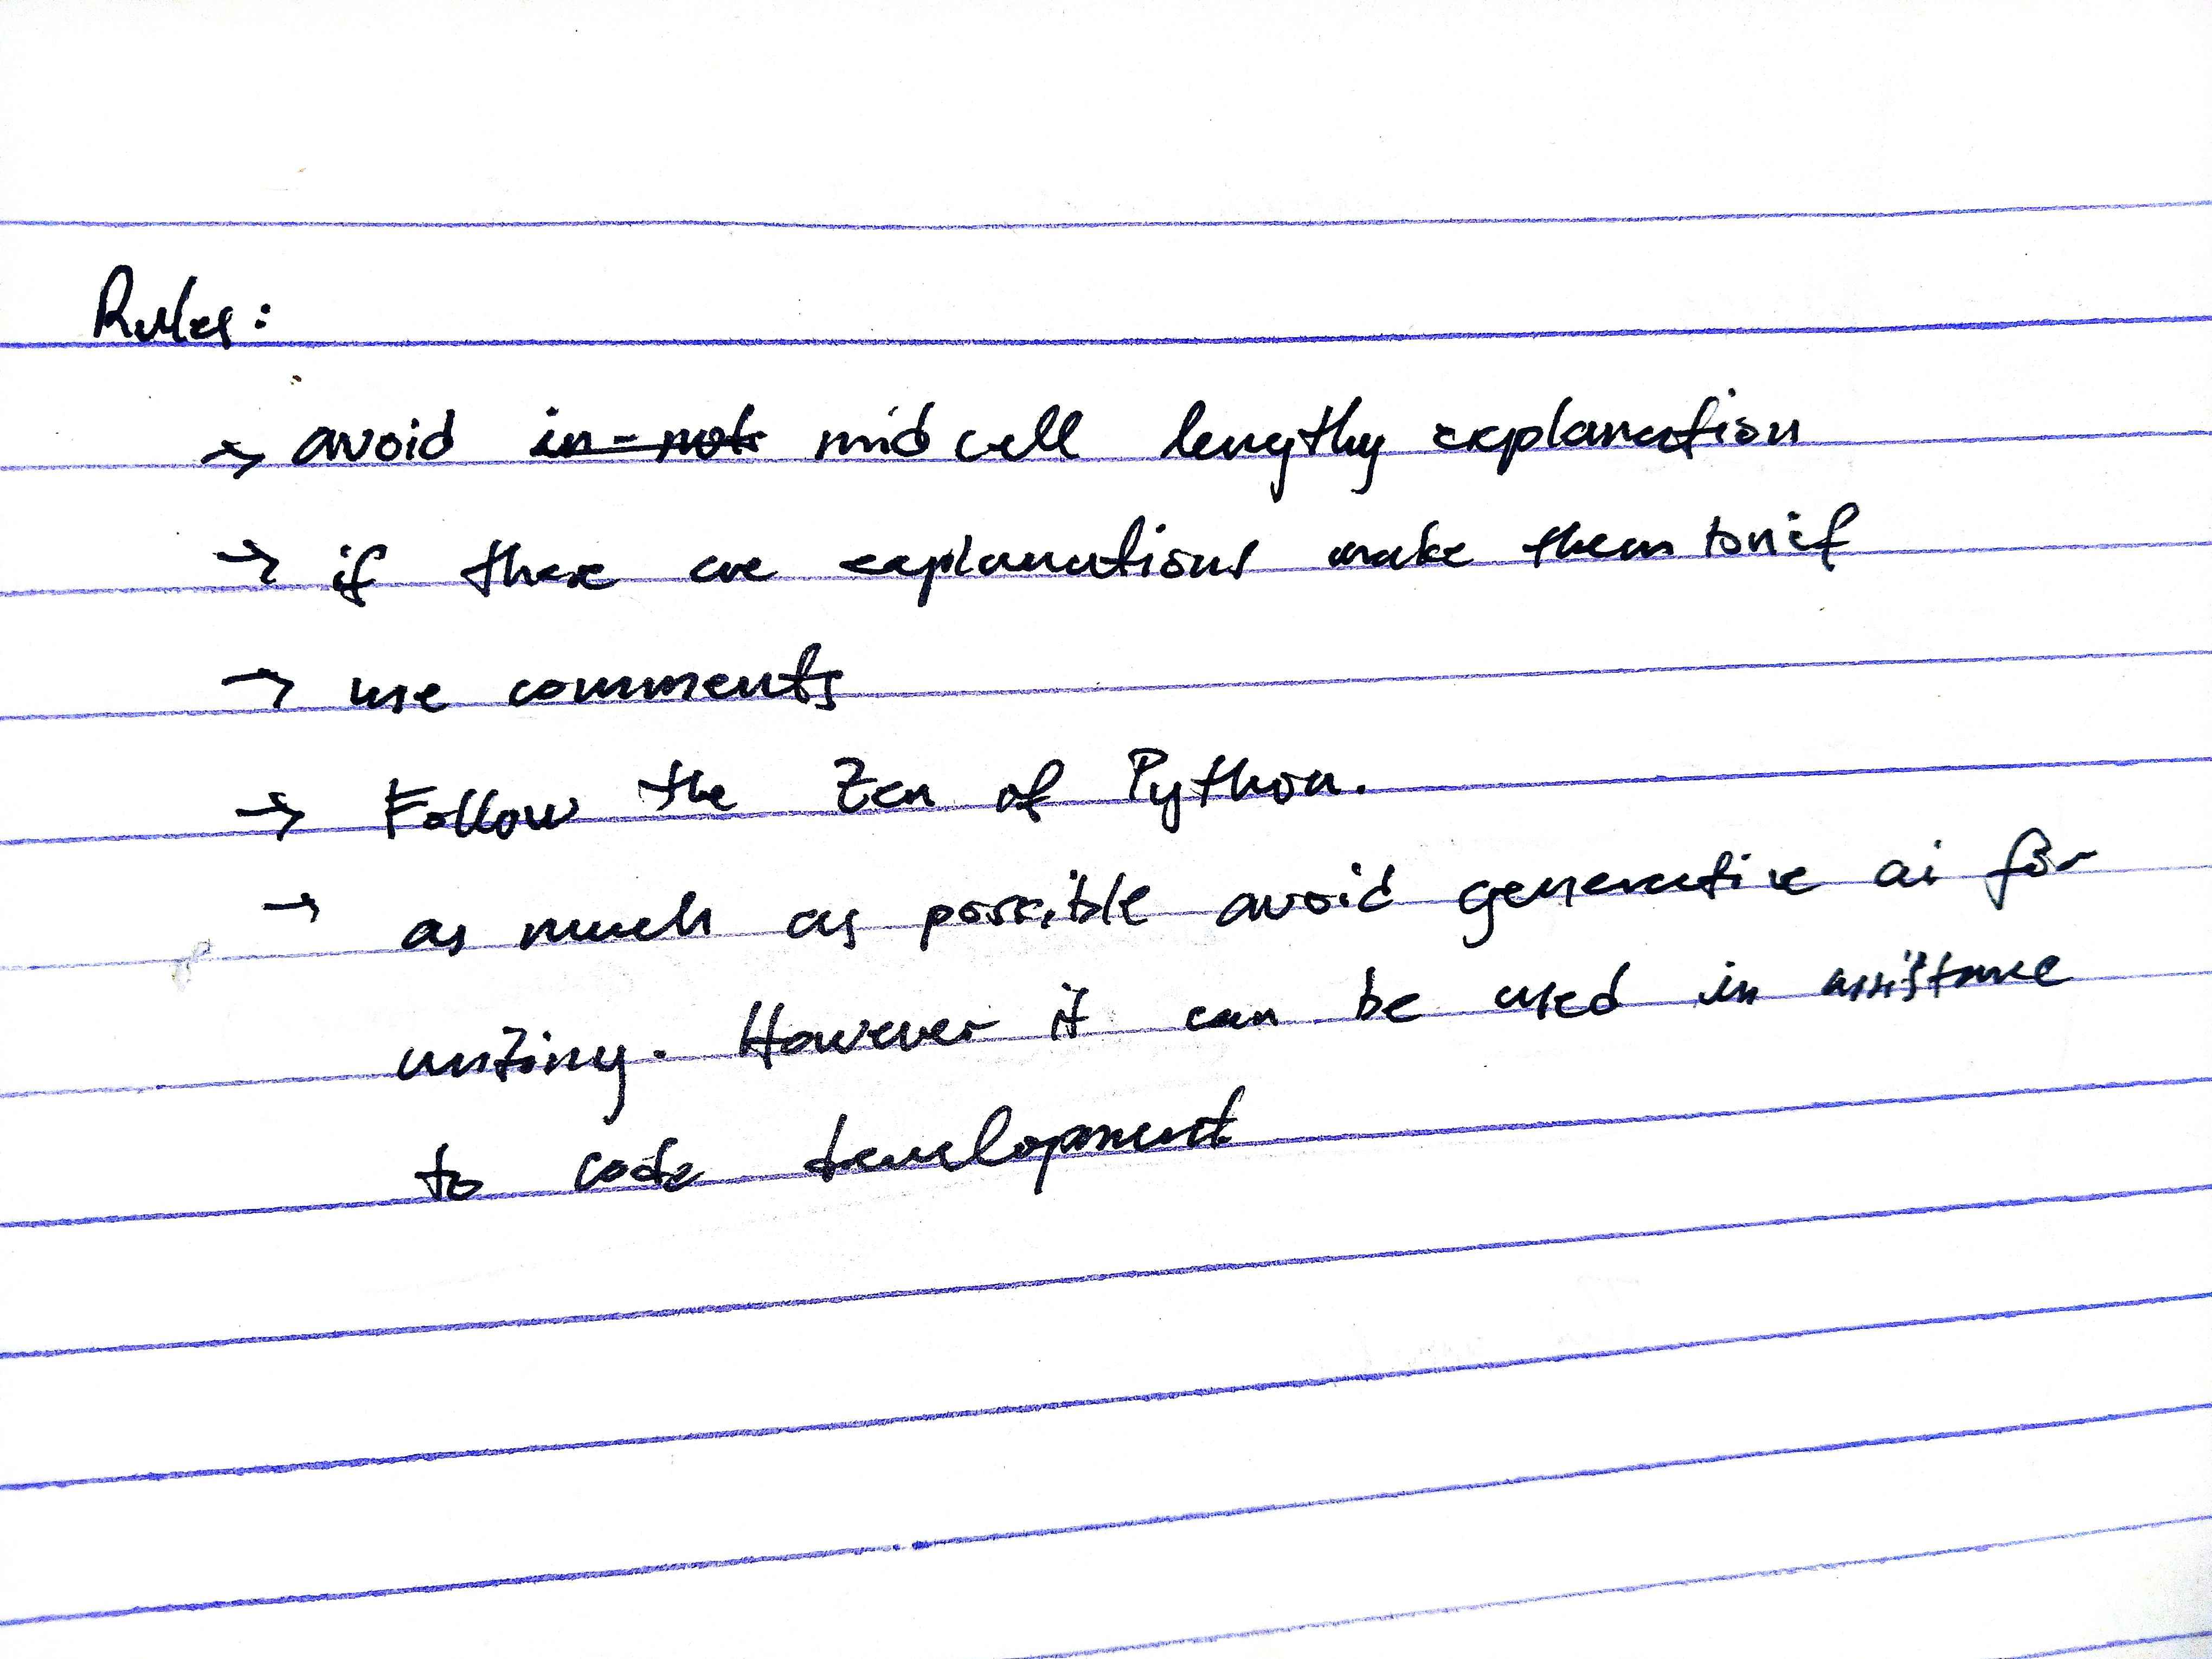 Rules:
→ avoid in-not mid cell lengthy explanation
→ if there are explanations make them brief
→ use comments
→ Follow the Zen of Python.
→ as much as possible avoid generative ai for
writing. However it can be used in assistance
to code development